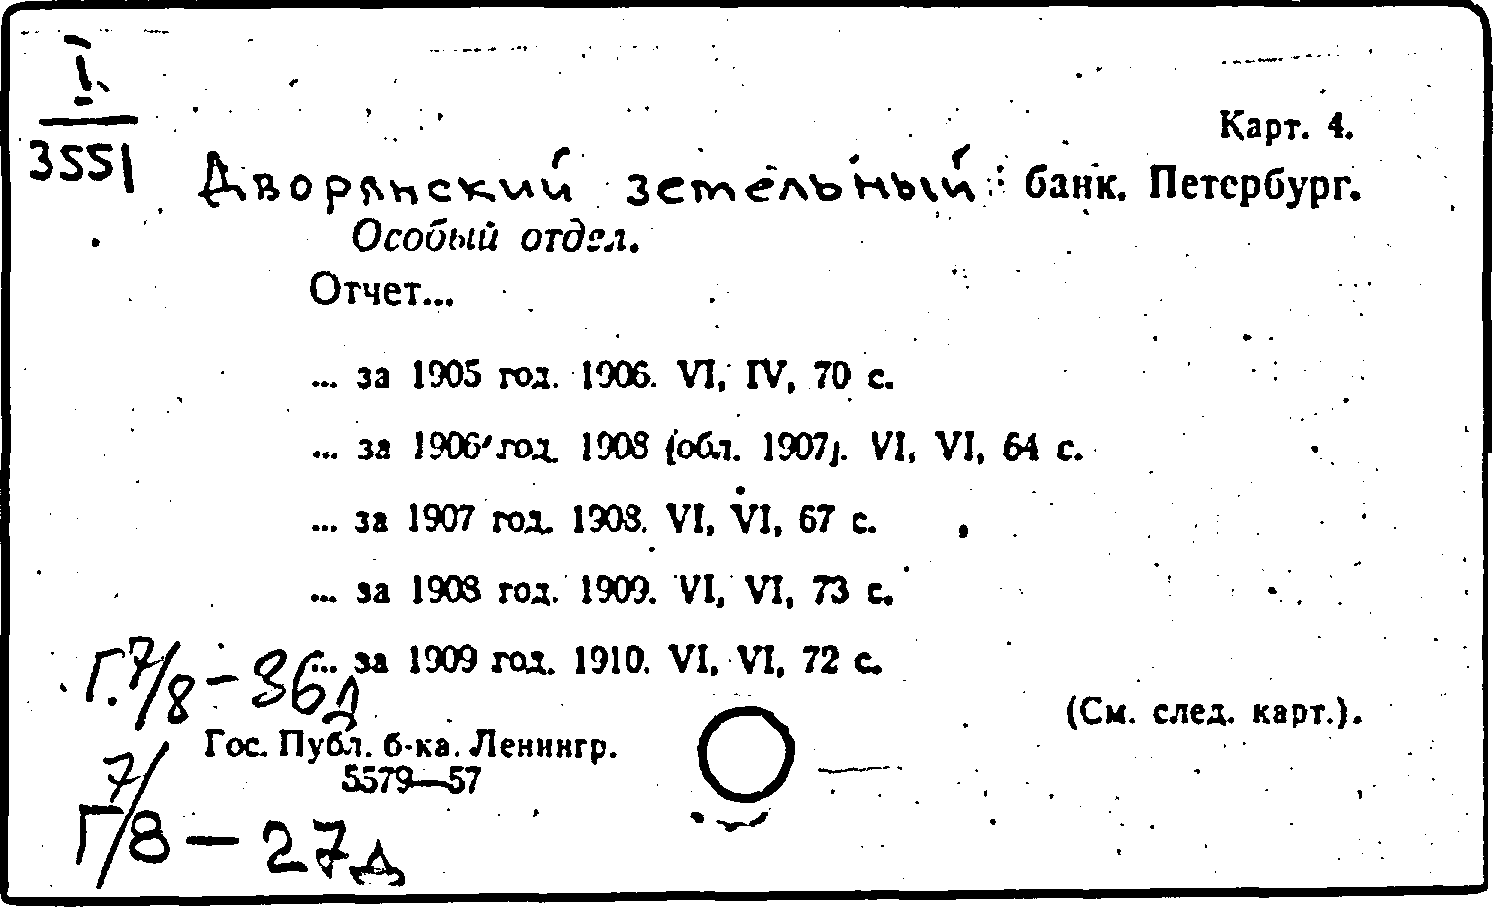 I
3551
Карт. 4.
Дворянский земельный банк. Петербург.
Особый отдел.
Отчет...
... за 1905 год. 1906. VI, IV, 70 с.
... за 1906 год. 1908 (обл. 1907). VI, VI, 64 с.
... за 1907 год. 1908. VI, VI, 67 с.
... за 1908 год. 1909. VI, VI, 73 с.
... за 1909 год. 1910. VI, VI, 72 с.
Г.7/8-36д
(См. след. карт.).
Гос. Публ. б-ка. Ленингр.
5579—57
Г7/8-27д